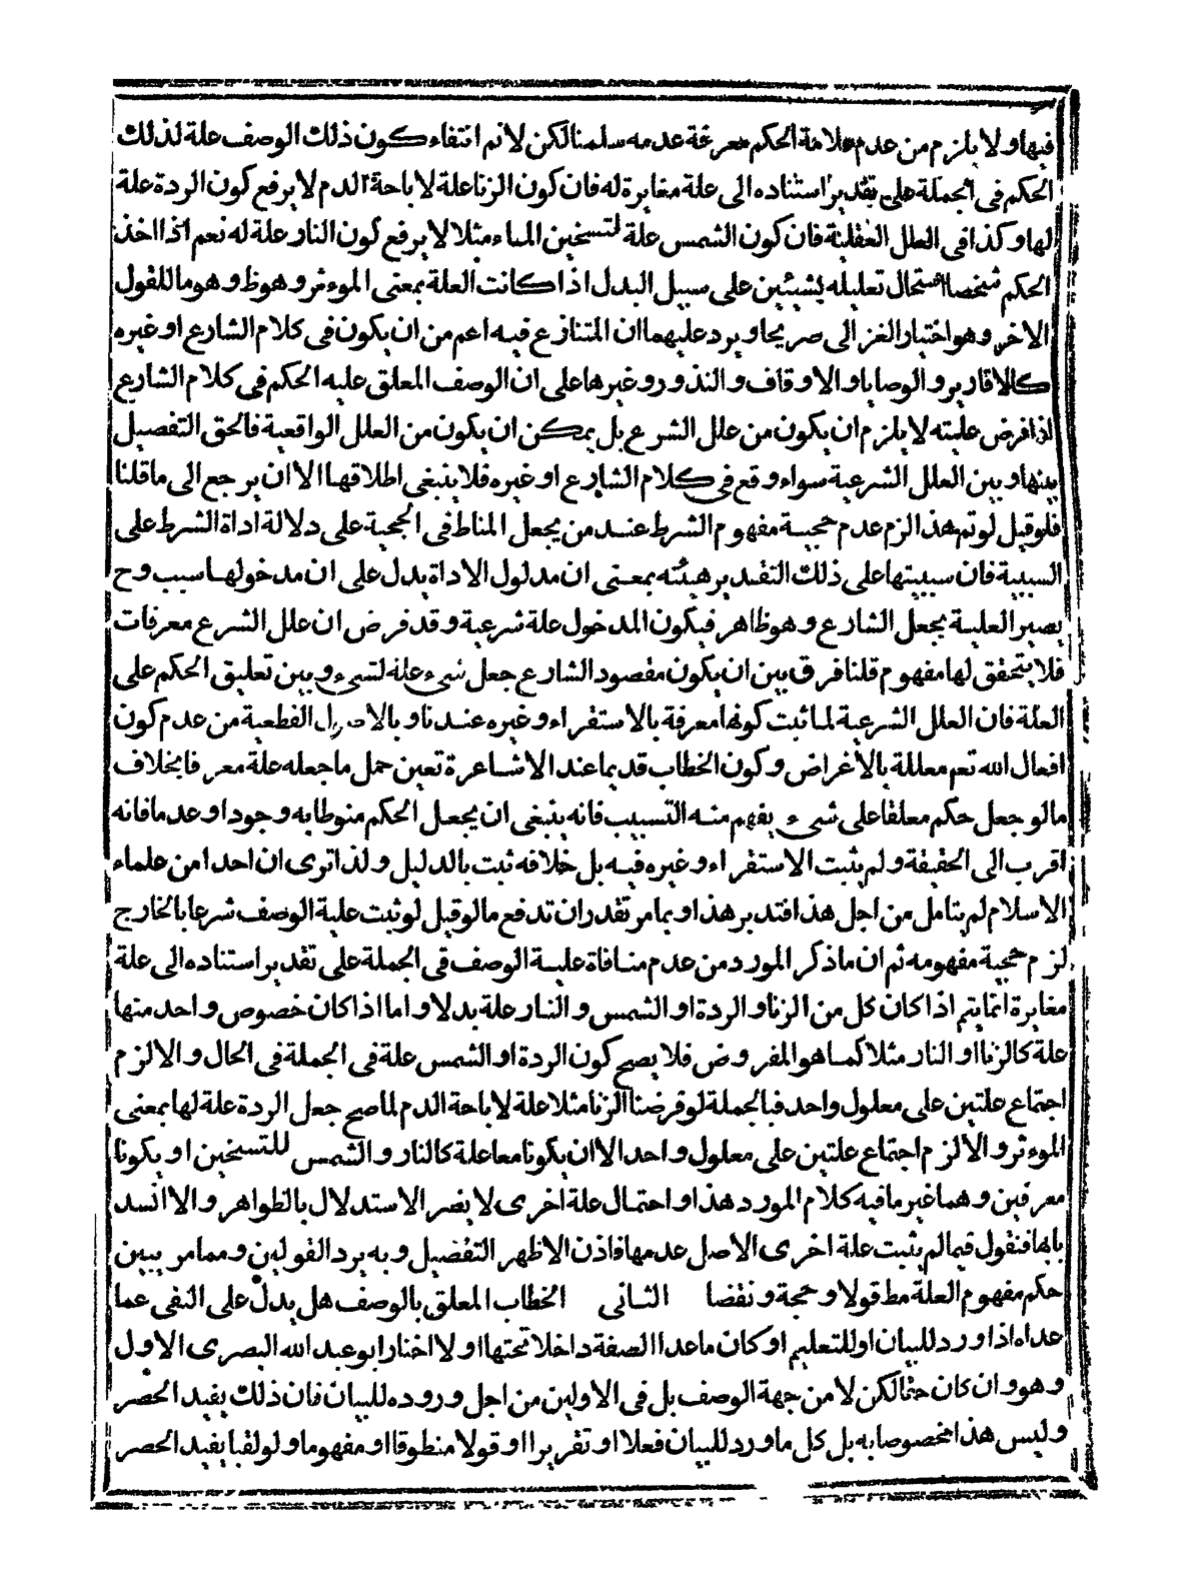 فيها ولا يلزم من عدم علامة الحكم معرفة عدمه سلمنا لكن لا نم انتفاء كون ذلك الوصف علة لذلك
الحكم في الجملة على تقدير استناده الى علة مغايرة له فان كون الزنا علة لاباحة الدم لا يرفع كون الردة علة
لها وكذا في العلل العقلية فان كون الشمس علة لتسخين الماء مثلا لا يرفع كون النار علة له نعم اذا اخذ
الحكم شخصا استحال تعليله بشيئين على سبيل البدل اذا كانت العلة بمعنى الموءثر وهو ظ وهو ما للقول
الاخر وهو اختيار الغزالى صريحا ويرد عليهما ان المتنازع فيه اعم من ان يكون في كلام الشارع او غيره
كالاقارير والوصايا والاوقاف والنذور وغيرها على ان الوصف المعلق عليه الحكم في كلام الشارع
اذا فرض عليته لا يلزم ان يكون من علل الشرع بل يمكن ان يكون من العلل الواقعية فالحق التفصيل
بينها وبين العلل الشرعية سواء وقع في كلام الشارع او غيره فلا ينبغى اطلاقها الا ان يرجع الى ما قلنا
فلو قيل لو تم هذا لزم عدم حجية مفهوم الشرط عند من يجعل المناط في الحجية على دلالة اداة الشرط على
السببية فان سببيتها على ذلك التقدير هيئته بمعنى ان مدلول الاداة يدل على ان مدخولها سبب وح
يصير العلية بجعل الشارع وهو ظاهر فيكون المدخول علة شرعية وقد فرض ان علل الشرع معرفات
فلا يتحقق لها مفهوم قلنا فرق بين ان يكون مقصود الشارع جعل شىء علة لشىء وبين تعليق الحكم على
العلة فان العلل الشرعية لما ثبت كونها معرفة بالاستقراء وغيره عندنا وبالاصول القطعية من عدم كون
افعال الله تعم معللة بالأغراض وكون الخطاب قديما عند الاشاعرة تعين حمل ما جعله علة معرفا بخلاف
ما لو جعل حكم معلقا على شىء يفهم منه التسبيب فانه ينبغى ان يجعل الحكم منوطا به وجودا وعدما فانه
اقرب الى الحقيقة ولم يثبت الاستقراء وغيره فيه بل خلافه ثبت بالدليل ولذا ترى ان احدا من علماء
الاسلام لم يتامل من اجل هذا فتدبر هذا وبما مر تقدر ان تدفع ما لو قيل لو ثبت علية الوصف شرعا بالخارج
لزم حجية مفهومه ثم ان ما ذكر المورد من عدم منافاة علية الوصف في الجملة على تقدير استناده الى علة
مغايرة انما يتم اذا كان كل من الزنا والردة او الشمس والنار علة بدلا واما اذا كان خصوص واحد منها
علة كالزنا او النار مثلا كما هو المفروض فلا يصح كون الردة او الشمس علة في الجملة في الحال والا لزم
اجتماع علتين على معلول واحد فبالجملة لو فرضنا الزنا مثلا علة لاباحة الدم لما صح جعل الردة علة لها بمعنى
الموءثر والا لزم اجتماع علتين على معلول واحد الا ان يكونا معا علة كالنار والشمس للتسخين او يكونا
معرفين وهما غير ما فيه كلام المورد هذا واحتمال علة اخرى لا يضر الاستدلال بالظواهر والا انسد
بابها فنقول فيما لم يثبت علة اخرى الاصل عدمها فاذن الاظهر التفصيل وبه يرد القولين ومما مر يبين
حكم مفهوم العلة مط قولا وحجة ونقضا الثانى الخطاب المعلق بالوصف هل يدل على النفى عما
عداه اذا ورد للبيان او للتعليم او كان ما عدا الصفة داخلا تحتها او لا اختار ابو عبد الله البصرى الاول
وهو وان كان حقا لكن لا من جهة الوصف بل في الاولين من اجل وروده للبيان فان ذلك يفيد الحصر
وليس هذا مخصوصا به بل كل ما ورد للبيان فعلا او تقريرا او قولا منطوقا او مفهوما ولو لقبا يفيد الحصر